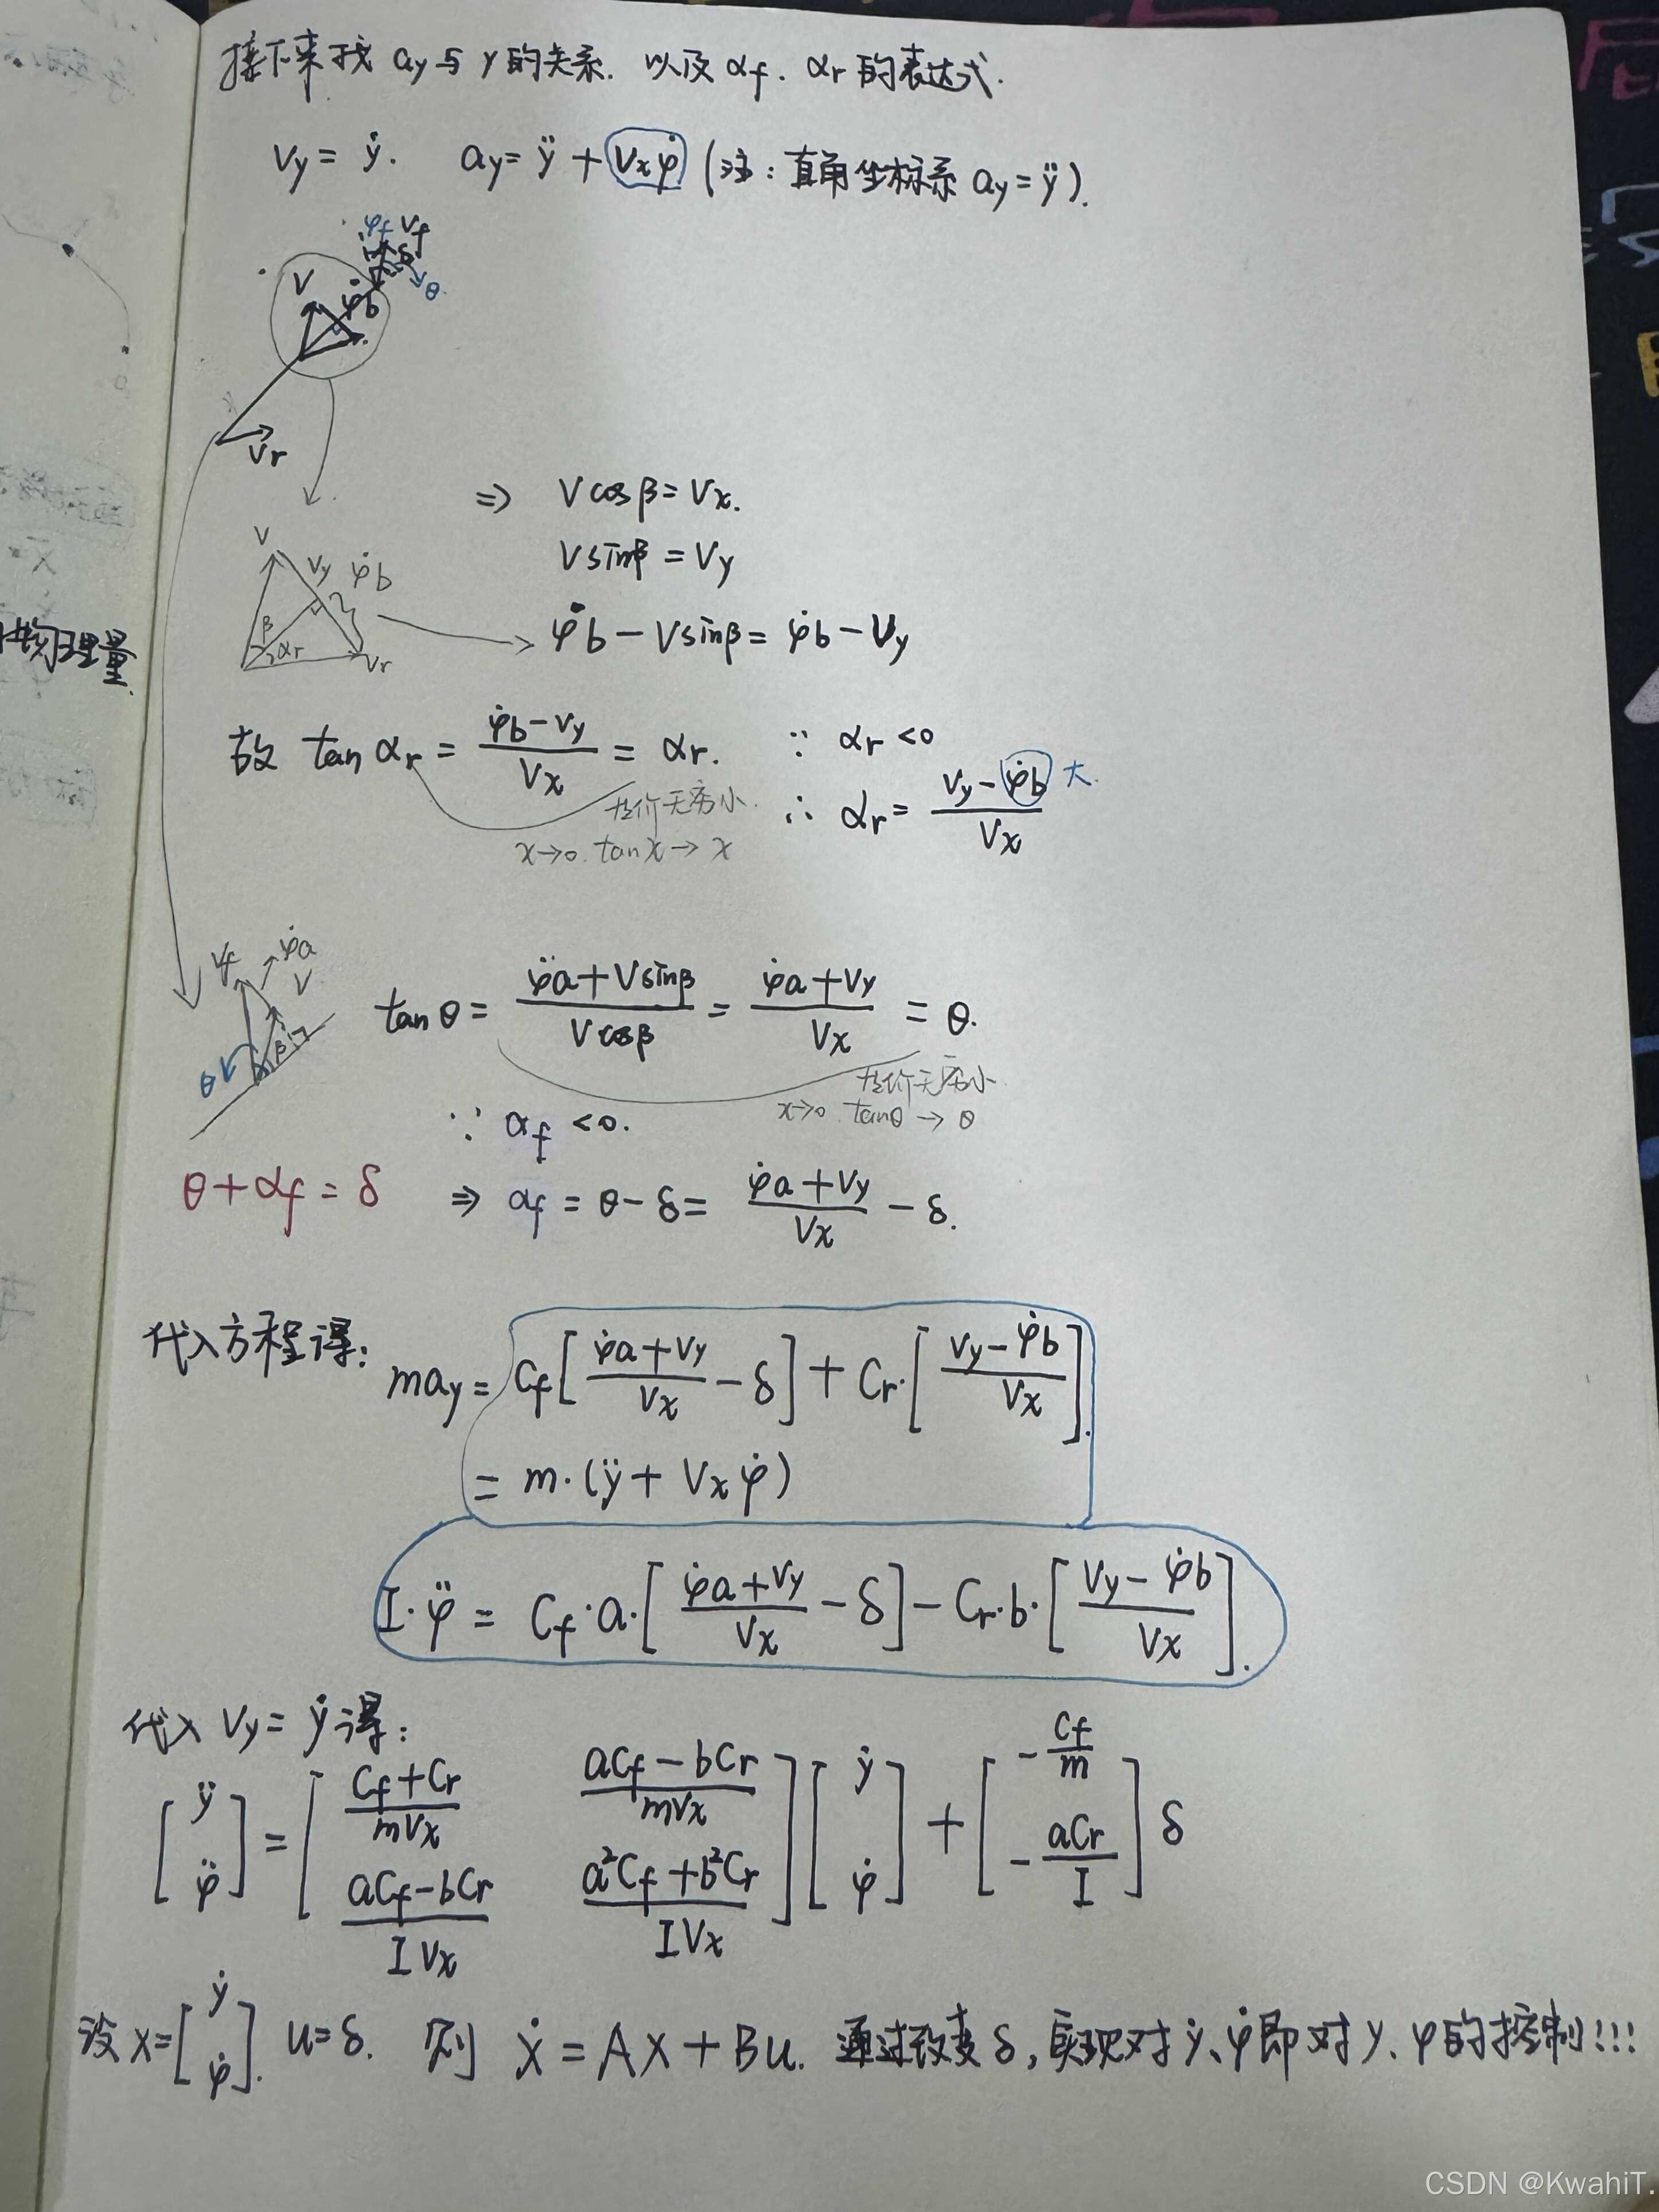 接下来找 ay 与 y 的关系. 以及 αf. αr 的表达式.
Vy = ẏ. ay = ÿ + Vxφ̇ (注: 直角坐标系 ay = ÿ).
φ̇f Vf
δ
θ
V φ̇b
Vr
⇒ V cosβ = Vx.
V sinβ = Vy
V Vy φ̇b
β αr Vr
φ̇b − V sinβ = φ̇b − Vy
物理量
故 tan αr = (φ̇b − Vy)/Vx = αr. ∵ αr < 0
等价无穷小. ∴ αr = (Vy − φ̇b)/Vx 大.
x→0. tanx → x
Vf φ̇a V
θ β
tanθ = (φ̈a + V sinβ)/(V cosβ) = (φ̇a + Vy)/Vx = θ.
等价无穷小
x→0. tanθ → θ
∵ αf < 0.
θ + αf = δ ⇒ αf = θ − δ = (φ̇a + Vy)/Vx − δ.
代入方程得: may = Cf[(φ̇a + Vy)/Vx − δ] + Cr·[(Vy − φ̇b)/Vx].
= m·(ÿ + Vxφ̇)
I·φ̈ = Cf·a·[(φ̇a + Vy)/Vx − δ] − Cr·b·[(Vy − φ̇b)/Vx].
代入 Vy = ẏ 得:
[ÿ; φ̈] = [(Cf + Cr)/(mVx) (aCf − bCr)/(mVx); (aCf − bCr)/(IVx) (a²Cf + b²Cr)/(IVx)] [ẏ; φ̇] + [−Cf/m; −aCr/I] δ
设 x = [ẏ; φ̇]. u = δ. 则 ẋ = Ax + Bu. 通过改变 δ, 实现对 ẏ、φ̇ 即对 y、φ 的控制!!!
CSDN @KwahiT.